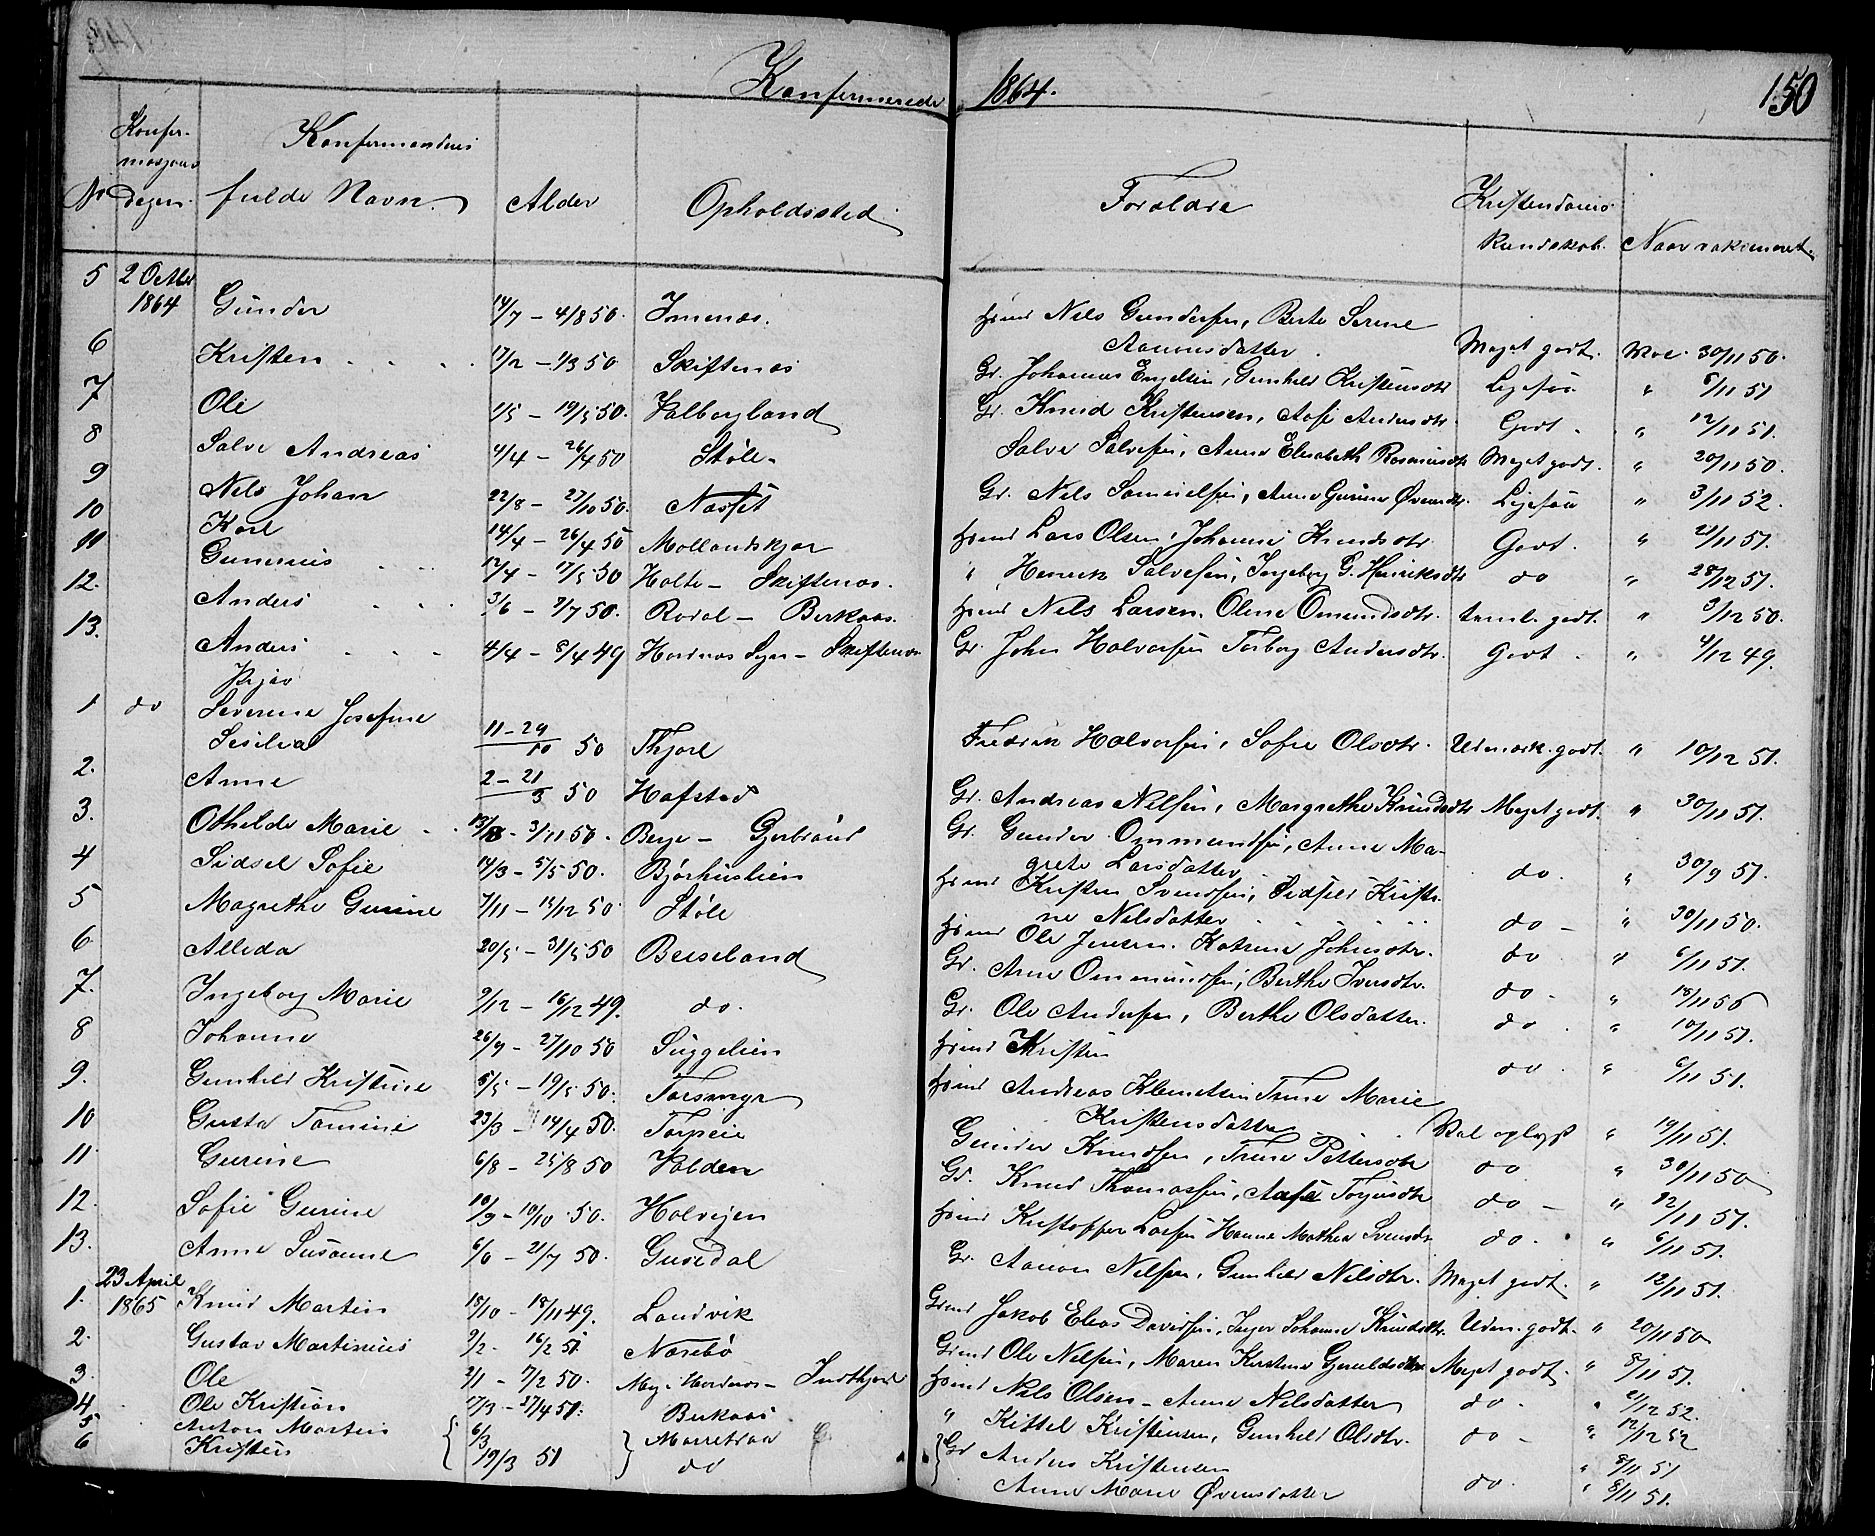 Konfirmerede 1864. 150
Konfir-
masjons
No Dagen. Konfirmandens fulde Navn. Alder Opholdssted Foreldre Kristendoms Kundskab. Naar vaksineret
5 2 Octbr 1864 Gunder 14/7 – 4/8 50. Imenæs. Hmd Nils Gundersen, Berte Serine
Aanonsdatter. Meget godt. Vac. 30/11 50.
6 Kristen 17/2 – 1/3 50 Skiftenæs Gr. Johannes Engelsen, Gunhild Kristensdtr Ligesaa " 6/11 51
7 Ole 1/5 – 19/5 50. Valborgland Gr. Knud Kristensen, Aase Andersdtr. Godt. " 12/11 51.
8 Salve Andreas 4/4 – 26/4 50 Støle. Salve Salvesen, Anne Elisabeth Rasmusdtr Meget godt. " 20/11 50.
9 Nils Johan 22/8 – 27/10 50. Næsset Gr. Nils Samuelsen, Anne Gurine Øvensdtr. Ligesaa " 3/11 52.
10 Karl 14/4 – 26/4 50 Mollandskjær Hmd Lars Olsen, Johanne Knudsdtr Godt. " 21/11 51.
11 Gunnius 12/4 – 17/5 50 Holte – Skiftenæs. " Henrik Salvesen, Ingeborg G. Henriksdtr do " 28/12 51.
12. Anders 3/6 – 7/7 50. Rodal – Berkaas. Hmd Nils Larsen. Oline Omundsdtr. temml. godt. " 3/12 50.
13. Anders 4/4 – 8/4 49 Hordnæs Eyer – Skiftenæs Gr. John Halvorsen Torborg Andersdtr. Godt. " 4/12 49.
Piger
1 do Severine Josefine
Sesilia 11–29/10 50 Fjære Fredrik Halvorsen, Sofie Olsdtr. Udmærk. godt. " 10/12 51.
2. Anne 2–21/3 50 Hafsted Gr. Andreas Nilsen, Margrethe Knudsdtr Meget godt. " 30/11 51.
3. Othilde Marie 13/8 – 3/11 50. Berge – Gjerbrønd Gr. Gunder Ommundsen, Anne Ma-
grete Larsdatter do. " 30/9 51.
4 Sidsel Sofie 14/3 – 5/5 50. Bjørhuslien Hmd Kristen Svendsen, Sidsel Kristi-
ne Nilsdatter do – " 30/11 50.
5 Magrethe Gurine 7/11 – 15/12 50 Støle Hmd Ole Jensen. Katrine Johnsdtr. do " 6/11 51.
6 Allida 20/5 – 31/5 50 Beiseland Gr. Arne Ommundsen, Berthe Iversdtr. do – " 18/11 56
7. Ingeborg Marie 9/12 – 16/12 49. do. Gr. Ole Andersen, Berthe Olsdatter. do. " 10/11 51.
8 Johanne 26/9 – 27/10 50 Suggelien Hmd Kristen do. " 6/11 51.
9. Gunhild Kristine 5/5 – 19/5 50. Torsmyr Hmd Andreas Klemetsen Trine Marie
Kristensdatter Vel oplyst " 19/11 51.
10 Gusta Tomine 23/3 – 14/4 50. Torpeie Gunder Knudsen, Trine Pettersdtr do " 30/11 50
11 Gurine 6/8 – 25/8 50 Valden Gr. Knud Thomassen, Aase Torjusdtr do – " 12/11 51.
12. Sofie Gurine 10/9 – 10/10 50. Holvigen Hmd Kristoffer Larsen Hanne Mathea Svensdtr do. " 6/11 51.
13. Anne Susanne 6/6 – 21/7 50. Gusedal Gr. Aanon Nilsen, Gunhild Nilsdtr. Meget godt. " 12/11 51.
1. 23 April 1865 Knud Martin 18/10 – 18/11 49. Landvik Grmd Jakob Elias Davidsen, Inger Johanne Knudsdtr. Udm. godt. " 20/11 50
2. Gustav Martinius 9/2 – 16/2 51 Næsebø Grmd Ole Nilsen, Maren Kirstine Gjeruldsdtr Meget godt. " 8/11 51.
3. Ole 2/1 – 7/2 50. Hordnæs – Indtkjær Hmd Nils Olsen – Anne Nilsdatter do. " 2/12 52.
4 Ole Kristian 27/3 – 27/4 51. Berkaas " Kittel Kristensen, Gunhild Olsdtr. do – " 12/12 52
5 Anton Martin 6/3 Marretraa Gr Anders Kristensen " 8/11 51
6 Kristen 19/3 51 do Anne Marie Øvensdatter do. " 8/11 51.